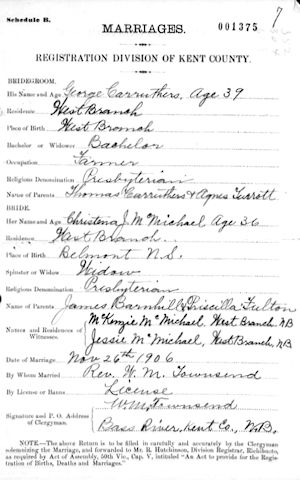 Schedule B.
7
MARRIAGES. 001375
REGISTRATION DIVISION OF KENT COUNTY.
BRIDEGROOM.
His Name and Age George Carruthers, Age 39
Residence West Branch
Place of Birth West Branch
Bachelor or Widower Bachelor
Occupation Farmer
Religious Denomination Presbyterian
Name of Parents Thomas Carruthers & Agnes
BRIDE.
Her Name and Age Christena J. McMichael Age 36
Residence West Branch.
Place of Birth Belmont N.S.
Spinster or Widow Widow
Religious Denomination Presbyterian
Name of Parents James Barnhill & Priscilla Fulton
Names and Residences of Witnesses. McKenzie McMichael, West Branch, NB
Jessie McMichael, West Branch, NB
Date of Marriage Nov 26th 1906
By Whom Married Rev. W. M. Townsend
By License or Banns. License
Signature and P. O. Address of Clergyman. W. M. Townsend
Bass River, Kent Co., N.B.
NOTE.—The above Return is to be filled in carefully and accurately by the Clergyman
solemnizing the Marriage, and forwarded to Mr. R. Hutchinson, Division Registrar, Richibucto,
as required by Act of Assembly, 50th Vic., Cap. V, intituled "An Act to provide for the Regis-
tration of Births, Deaths and Marriages."